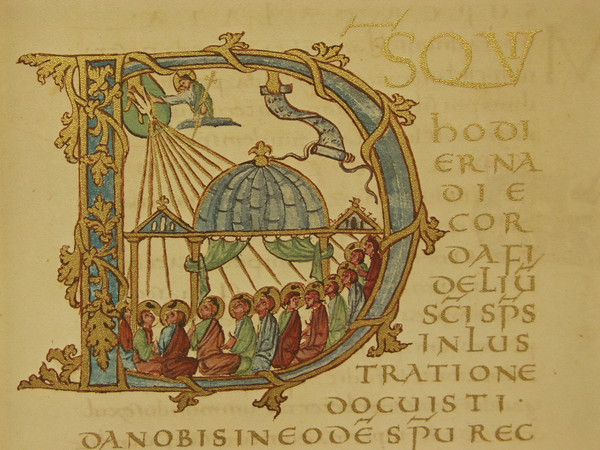 DSQVI
hODI
ERNA
DIE
COR
DAFI
DELIŪ
SC̄I SP̄S
INLUS
TRATIONE
DOCUISTI·
DANOBISINEODĒ SP̄U REC